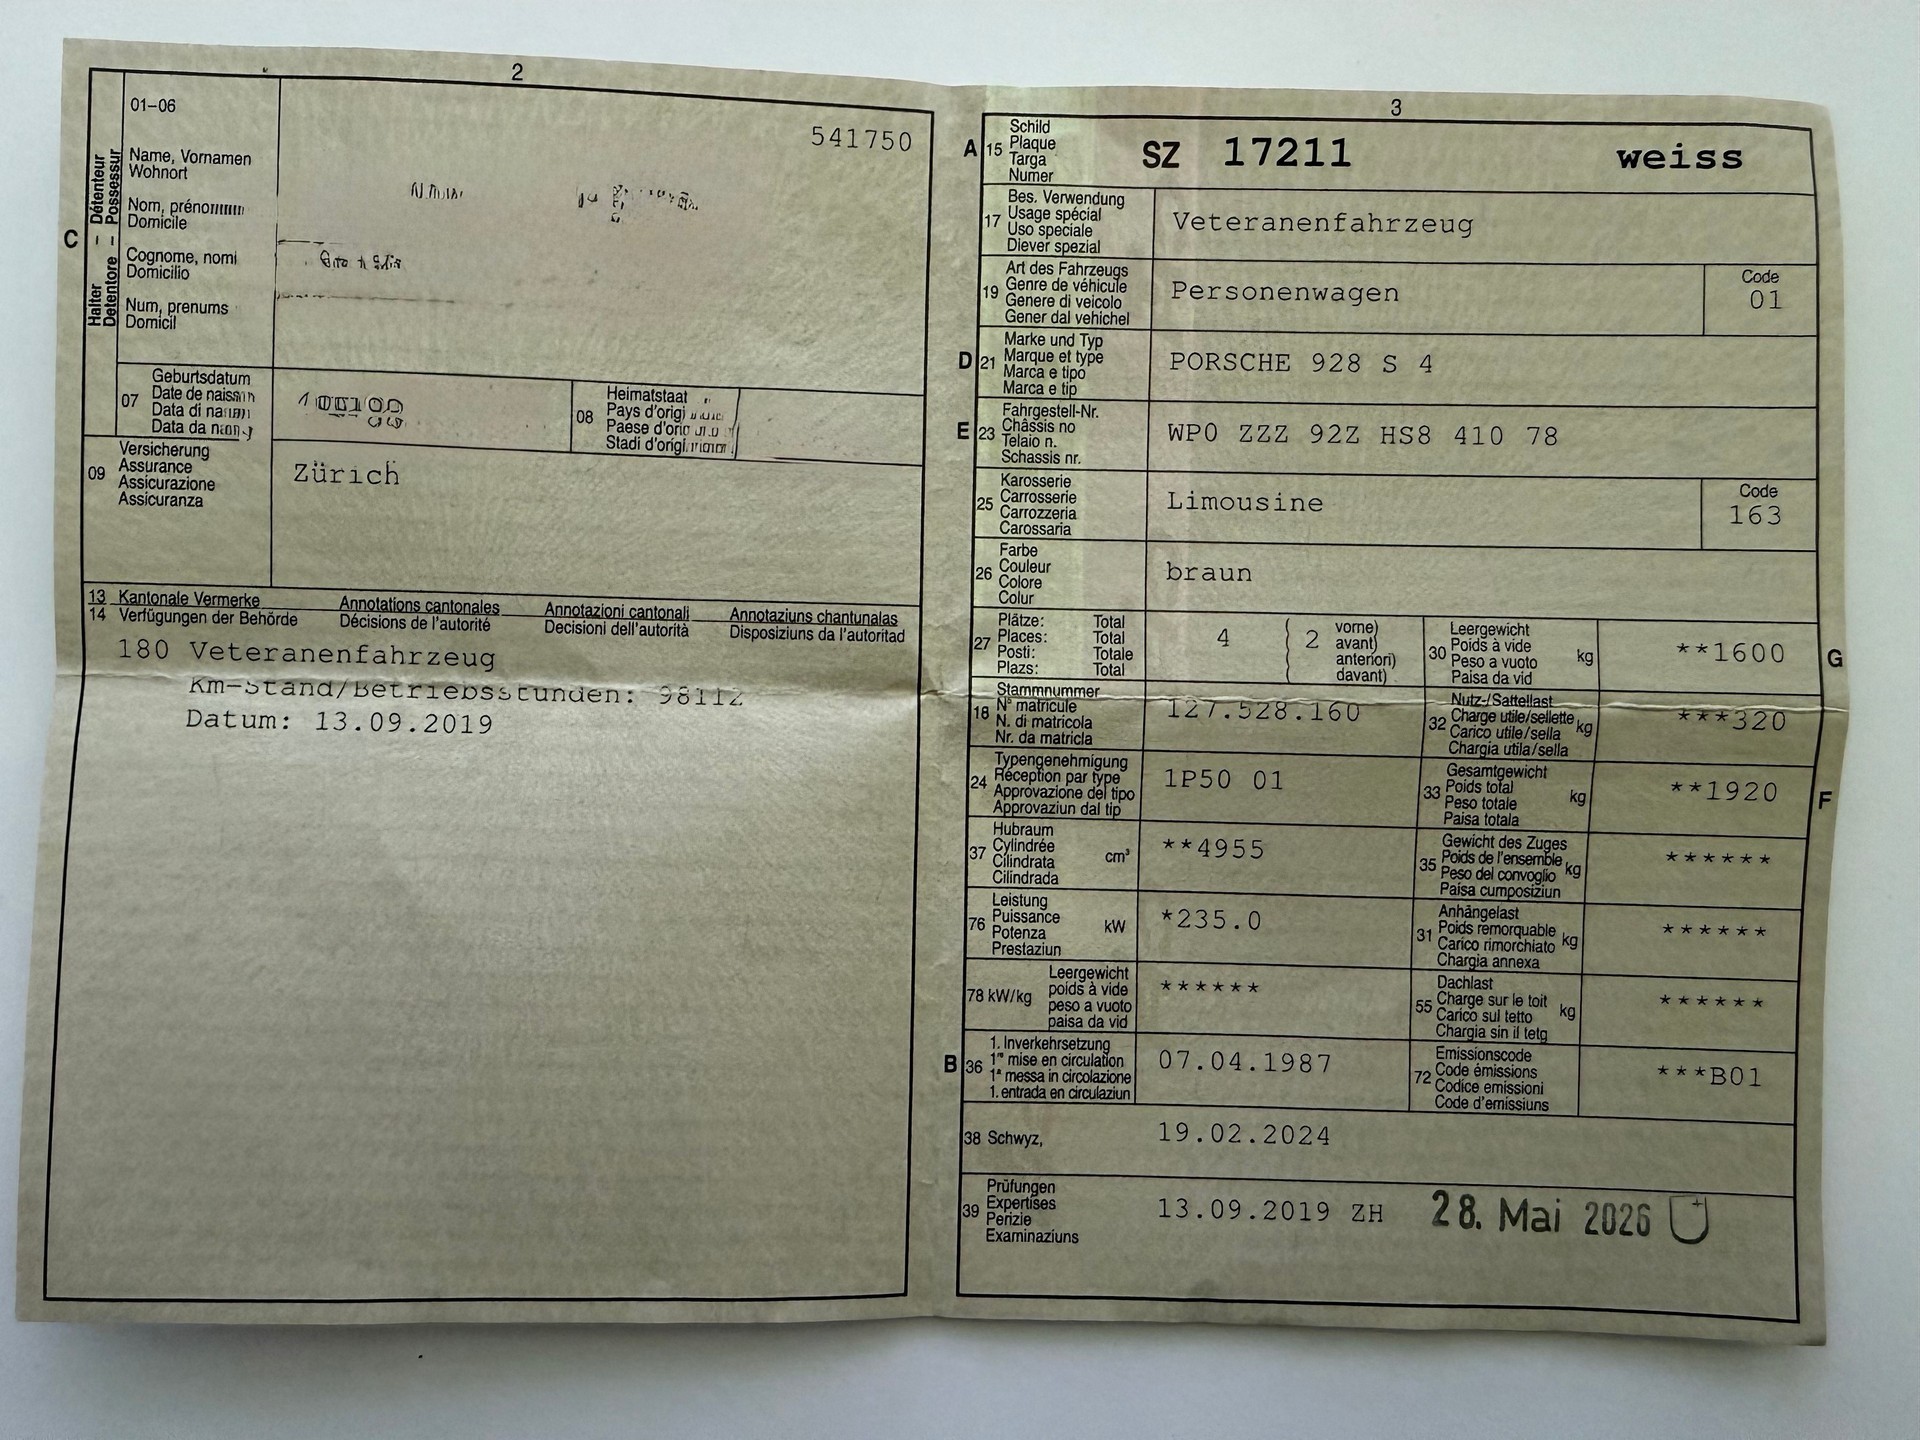 2
01-06
541750
Halter – Détenteur
Detentore – Possessur
C
Name, Vornamen
Wohnort
Nom,
Domicile
Cognome, nomi
Domicilio
Num, prenums
Domicil
07
Geburtsdatum
Date de
Data di
Data da
08
Heimatstaat
Pays
Paese
Stadi
09
Versicherung
Assurance
Assicurazione
Assicuranza
Zürich
13 Kantonale Vermerke Annotations cantonales Annotazioni cantonali Annotaziuns chantunalas
14 Verfügungen der Behörde Décisions de l'autorité Decisioni dell'autorità Disposiziuns da l'autoritad
180 Veteranenfahrzeug
Km-Stand/Betriebsstunden: 98112
Datum: 13.09.2019
3
A 15
Schild
Plaque
Targa
Numer
SZ 17211 weiss
17
Bes. Verwendung
Usage spécial
Uso speciale
Diever spezial
Veteranenfahrzeug
19
Art des Fahrzeugs
Genre de véhicule
Genere di veicolo
Gener dal vehichel
Personenwagen
Code
01
D 21
Marke und Typ
Marque et type
Marca e tipo
Marca e tip
PORSCHE 928 S 4
E 23
Fahrgestell-Nr.
Châssis no
Telaio n.
Schassis nr.
WP0 ZZZ 92Z HS8 410 78
25
Karosserie
Carrosserie
Carrozzeria
Carossaria
Limousine
Code
163
26
Farbe
Couleur
Colore
Colur
braun
27
Plätze: Total
Places: Total
Posti: Totale
Plazs: Total
4
( 2 vorne)
avant)
anteriori)
( davant)
30
Leergewicht
Poids à vide
Peso a vuoto
Paisa da vid
kg
**1600
G
18
Stammnummer
N° matricule
N. di matricola
Nr. da matricla
127.528.160
32
Nutz-/Sattellast
Charge utile/sellette
Carico utile/sella
Chargia utila/sella
kg
***320
24
Typengenehmigung
Réception par type
Approvazione del tipo
Approvaziun dal tip
1P50 01
33
Gesamtgewicht
Poids total
Peso totale
Paisa totala
kg
**1920
F
37
Hubraum
Cylindrée
Cilindrata
Cilindrada
cm³
**4955
35
Gewicht des Zuges
Poids de l'ensemble
Peso del convoglio
Paisa cumposiziun
kg
******
76
Leistung
Puissance
Potenza
Prestaziun
kW
*235.0
31
Anhängelast
Poids remorquable
Carico rimorchiato
Chargia annexa
kg
******
78 kW/kg
Leergewicht
poids à vide
peso a vuoto
paisa da vid
******
55
Dachlast
Charge sur le toit
Carico sul tetto
Chargia sin il tetg
kg
******
B 36
1. Inverkehrsetzung
1re mise en circulation
1a messa in circolazione
1. entrada en circulaziun
07.04.1987
72
Emissionscode
Code émissions
Codice emissioni
Code d'emissiuns
***B01
38 Schwyz, 19.02.2024
39
Prüfungen
Expertises
Perizie
Examinaziuns
13.09.2019 ZH 28. Mai 2026